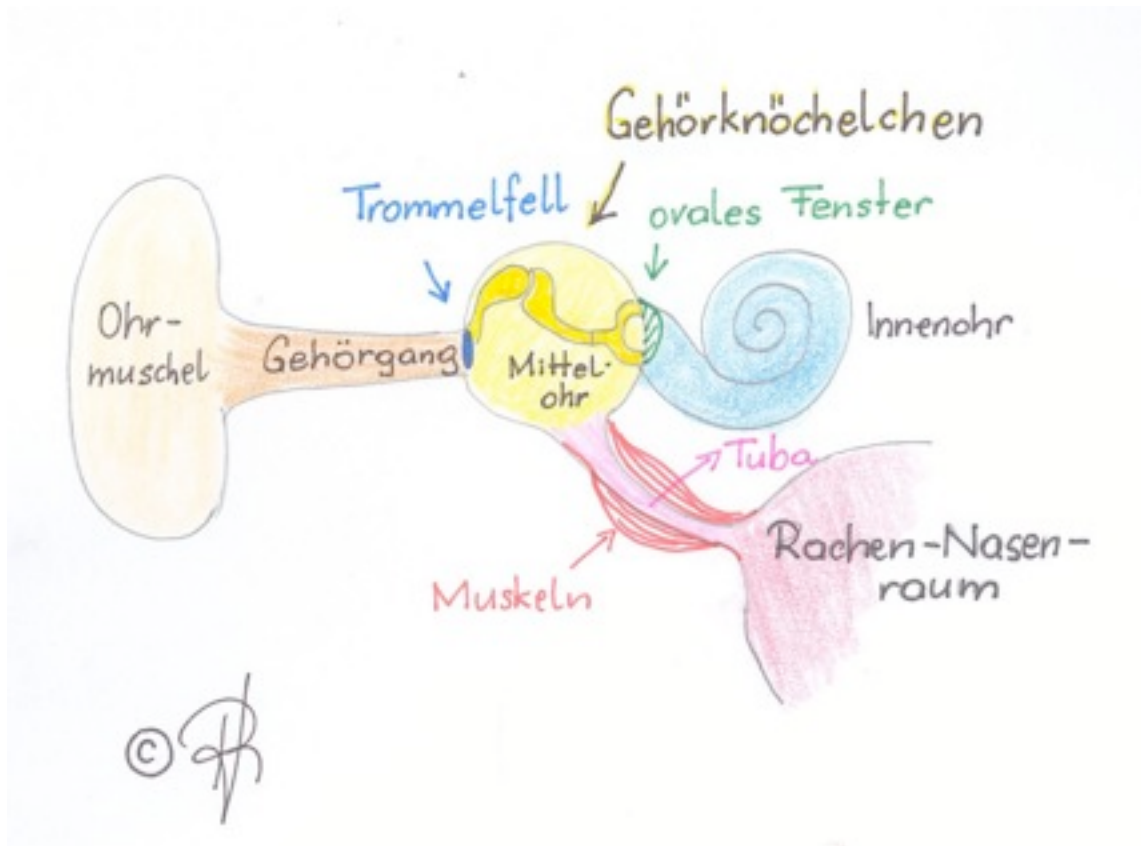 Gehörknöchelchen
Trommelfell
ovales Fenster
Ohr-
muschel
Gehörgang
Mittel-
ohr
Innenohr
Tuba
Rachen-Nasen-
raum
Muskeln
©